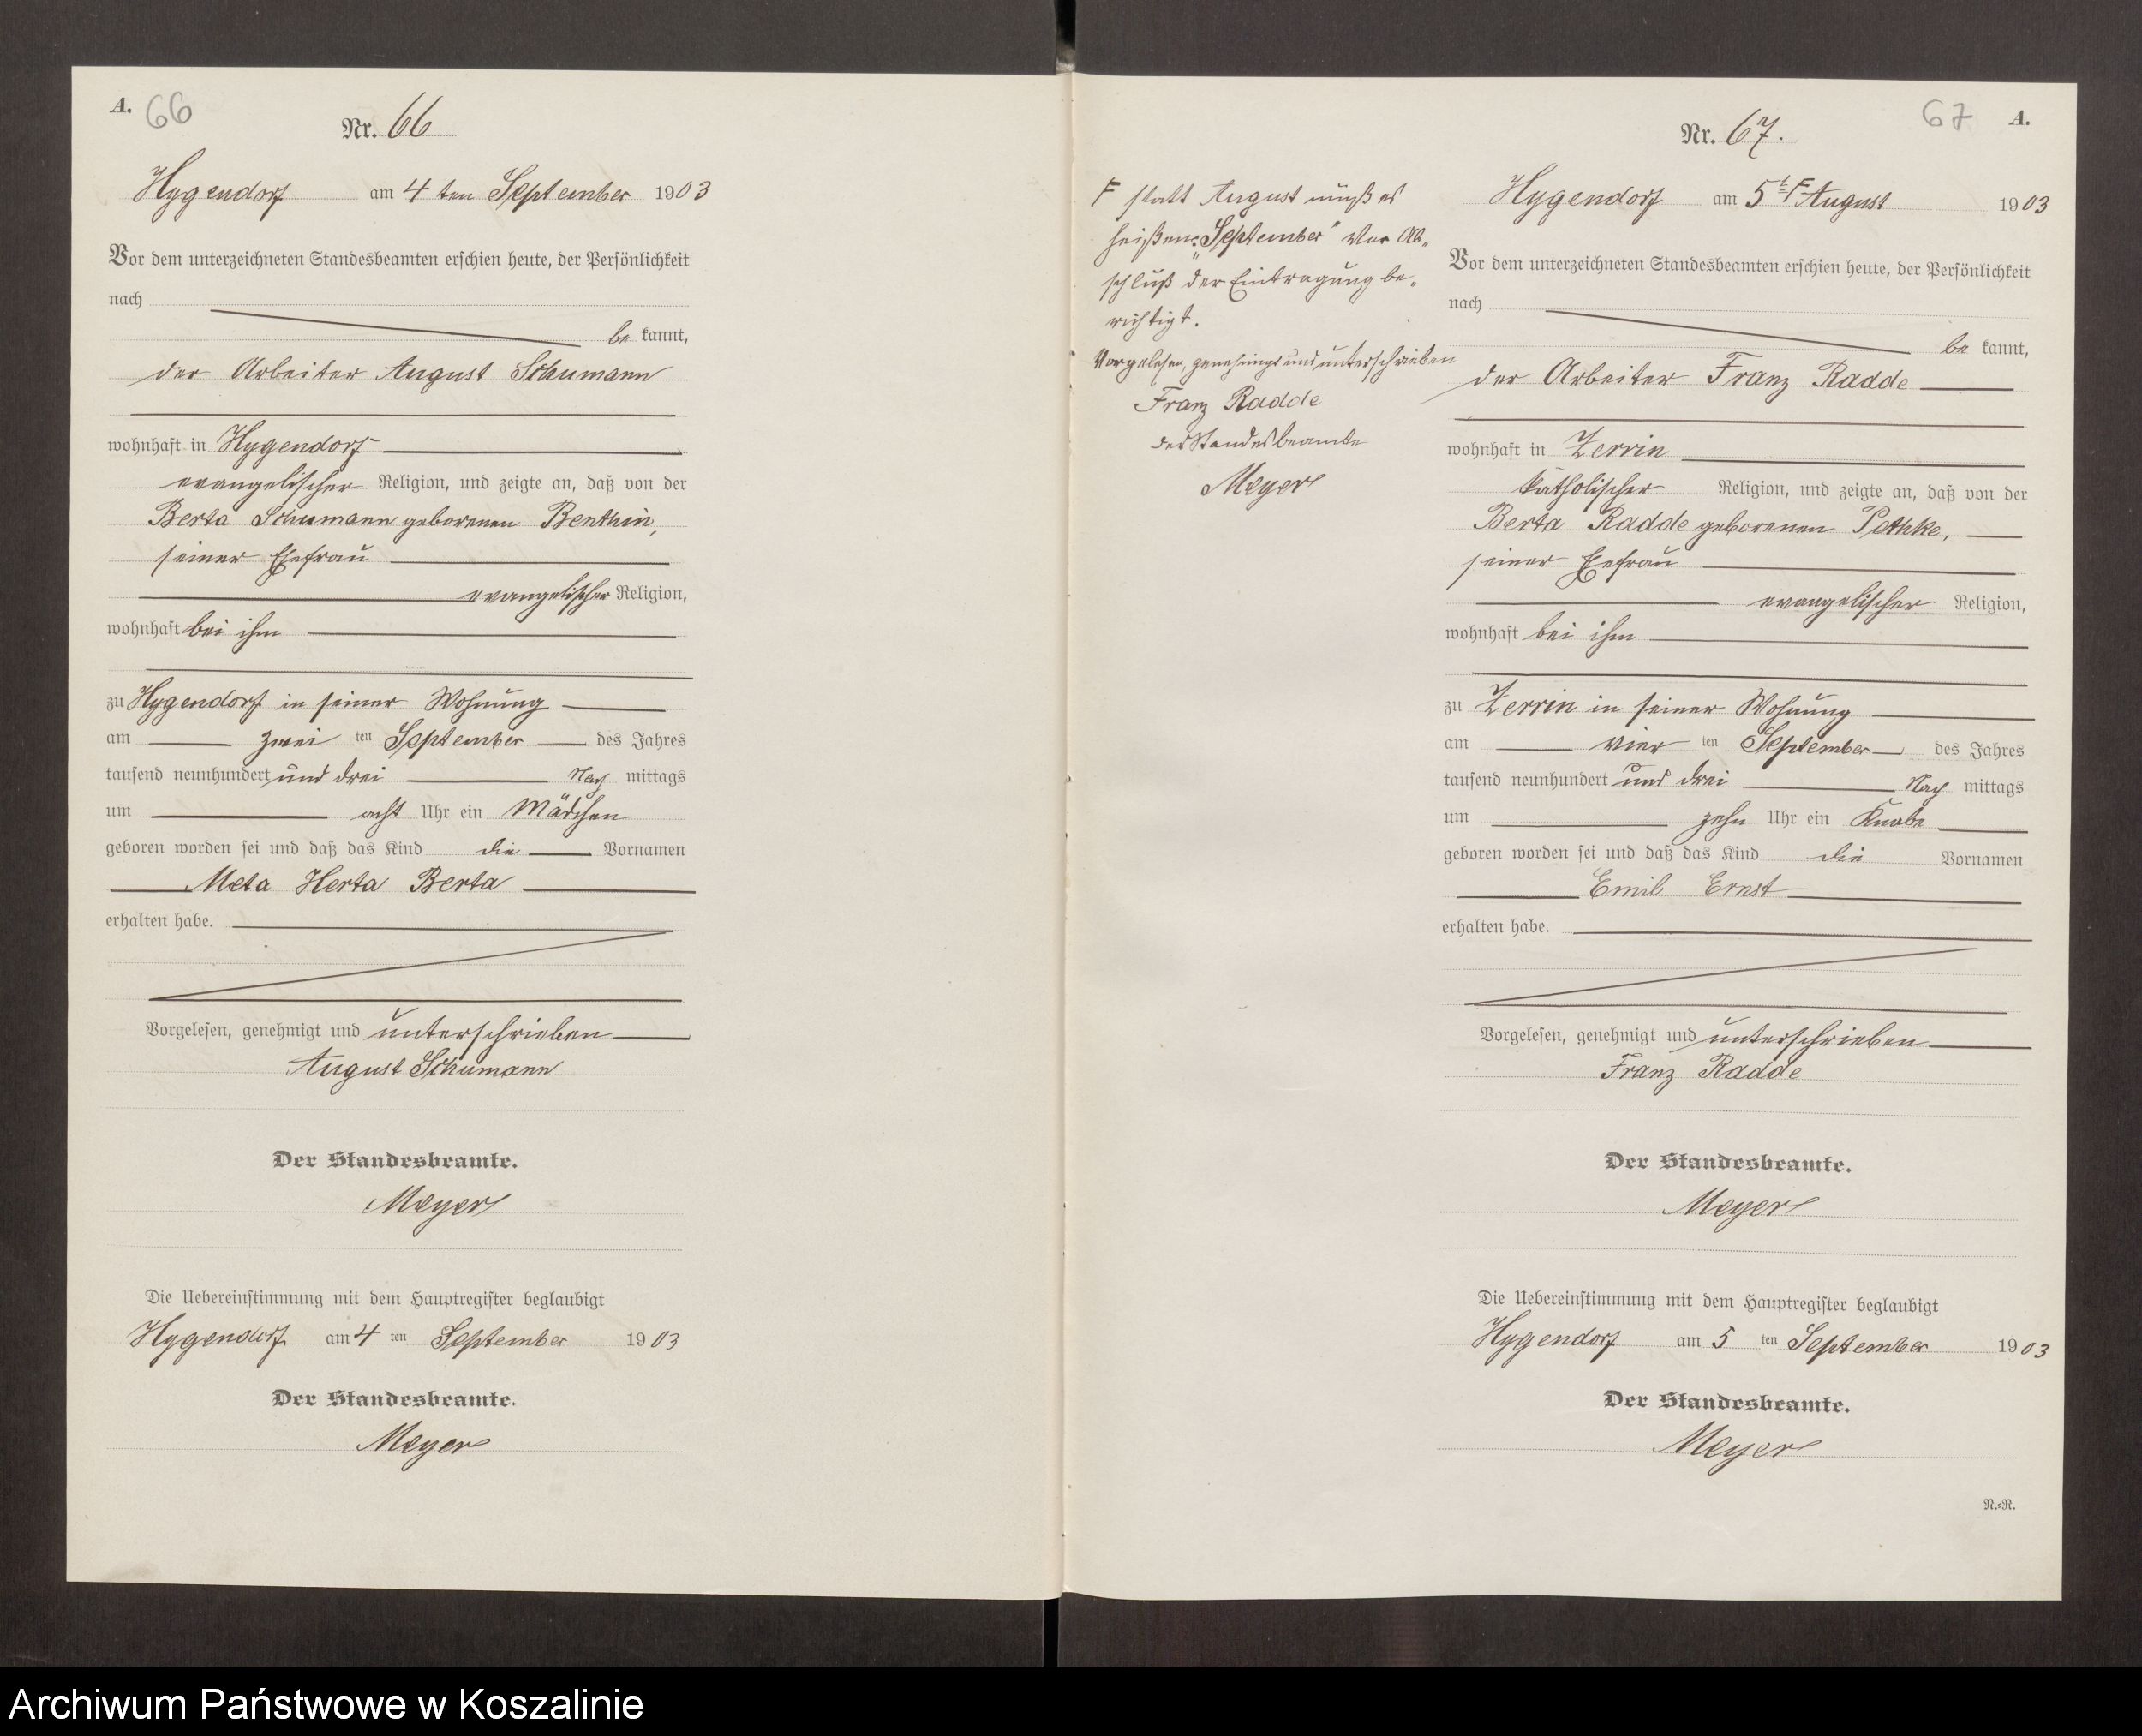 A. 66
Nr. 66
Hygendorf am 4 ten September 1903
Vor dem unterzeichneten Standesbeamten erschien heute, der Persönlichkeit
nach
be kannt,
der Arbeiter August Schumann
wohnhaft in Hygendorf
evangelischer Religion, und zeigte an, daß von der
Berta Schumann geborenen Benthin,
seiner Ehefrau
evangelischer Religion,
wohnhaft bei ihm
zu Hygendorf in seiner Wohnung
am zwei ten September des Jahres
tausend neunhundert und drei Nach mittags
um acht Uhr ein Mädchen
geboren worden sei und daß das Kind die Vornamen
Meta Herta Berta
erhalten habe.
Vorgelesen, genehmigt und unterschrieben
August Schumann
Der Standesbeamte.
Meyer
Die Uebereinstimmung mit dem Hauptregister beglaubigt
Hygendorf am 4 ten September 1903
Der Standesbeamte.
Meyer
F statt August muß es
heißen: „September" Vor Ab-
schluß der Eintragung be-
richtigt.
Vorgelesen, genehmigt und unterschrieben
Franz Radde
der Standesbeamte
Meyer
67 A.
Nr. 67.
Hygendorf am 5t F August 1903
Vor dem unterzeichneten Standesbeamten erschien heute, der Persönlichkeit
nach
be kannt,
der Arbeiter Franz Radde
wohnhaft in Zerrin
katholischer Religion, und zeigte an, daß von der
Berta Radde geborenen Pethke,
seiner Ehefrau
evangelischer Religion,
wohnhaft bei ihm
zu Zerrin in seiner Wohnung
am vier ten September des Jahres
tausend neunhundert und drei Nach mittags
um zehn Uhr ein Knabe
geboren worden sei und daß das Kind die Vornamen
Emil Ernst
erhalten habe.
Vorgelesen, genehmigt und unterschrieben
Franz Radde
Der Standesbeamte.
Meyer
Die Uebereinstimmung mit dem Hauptregister beglaubigt
Hygendorf am 5 ten September 1903
Der Standesbeamte.
Meyer
N.=R.
Archiwum Państwowe w Koszalinie